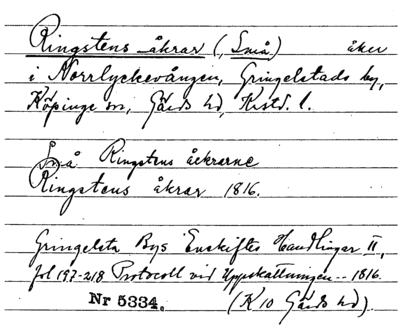 Ringstens åkrar (, Små) åker
i Norrlyckevången, Gringelstads by,
Köpinge sn, Gärds hd, Krstd. l.
Små Ringstens åckrarne
Ringstens åkrar 1816.
Gringelsta Bys Enskiftes Handlingar II,
fol 197-218 Protocoll vid Uppskattningen -- 1816.
Nr 5334. (K 10 Gärds hd).